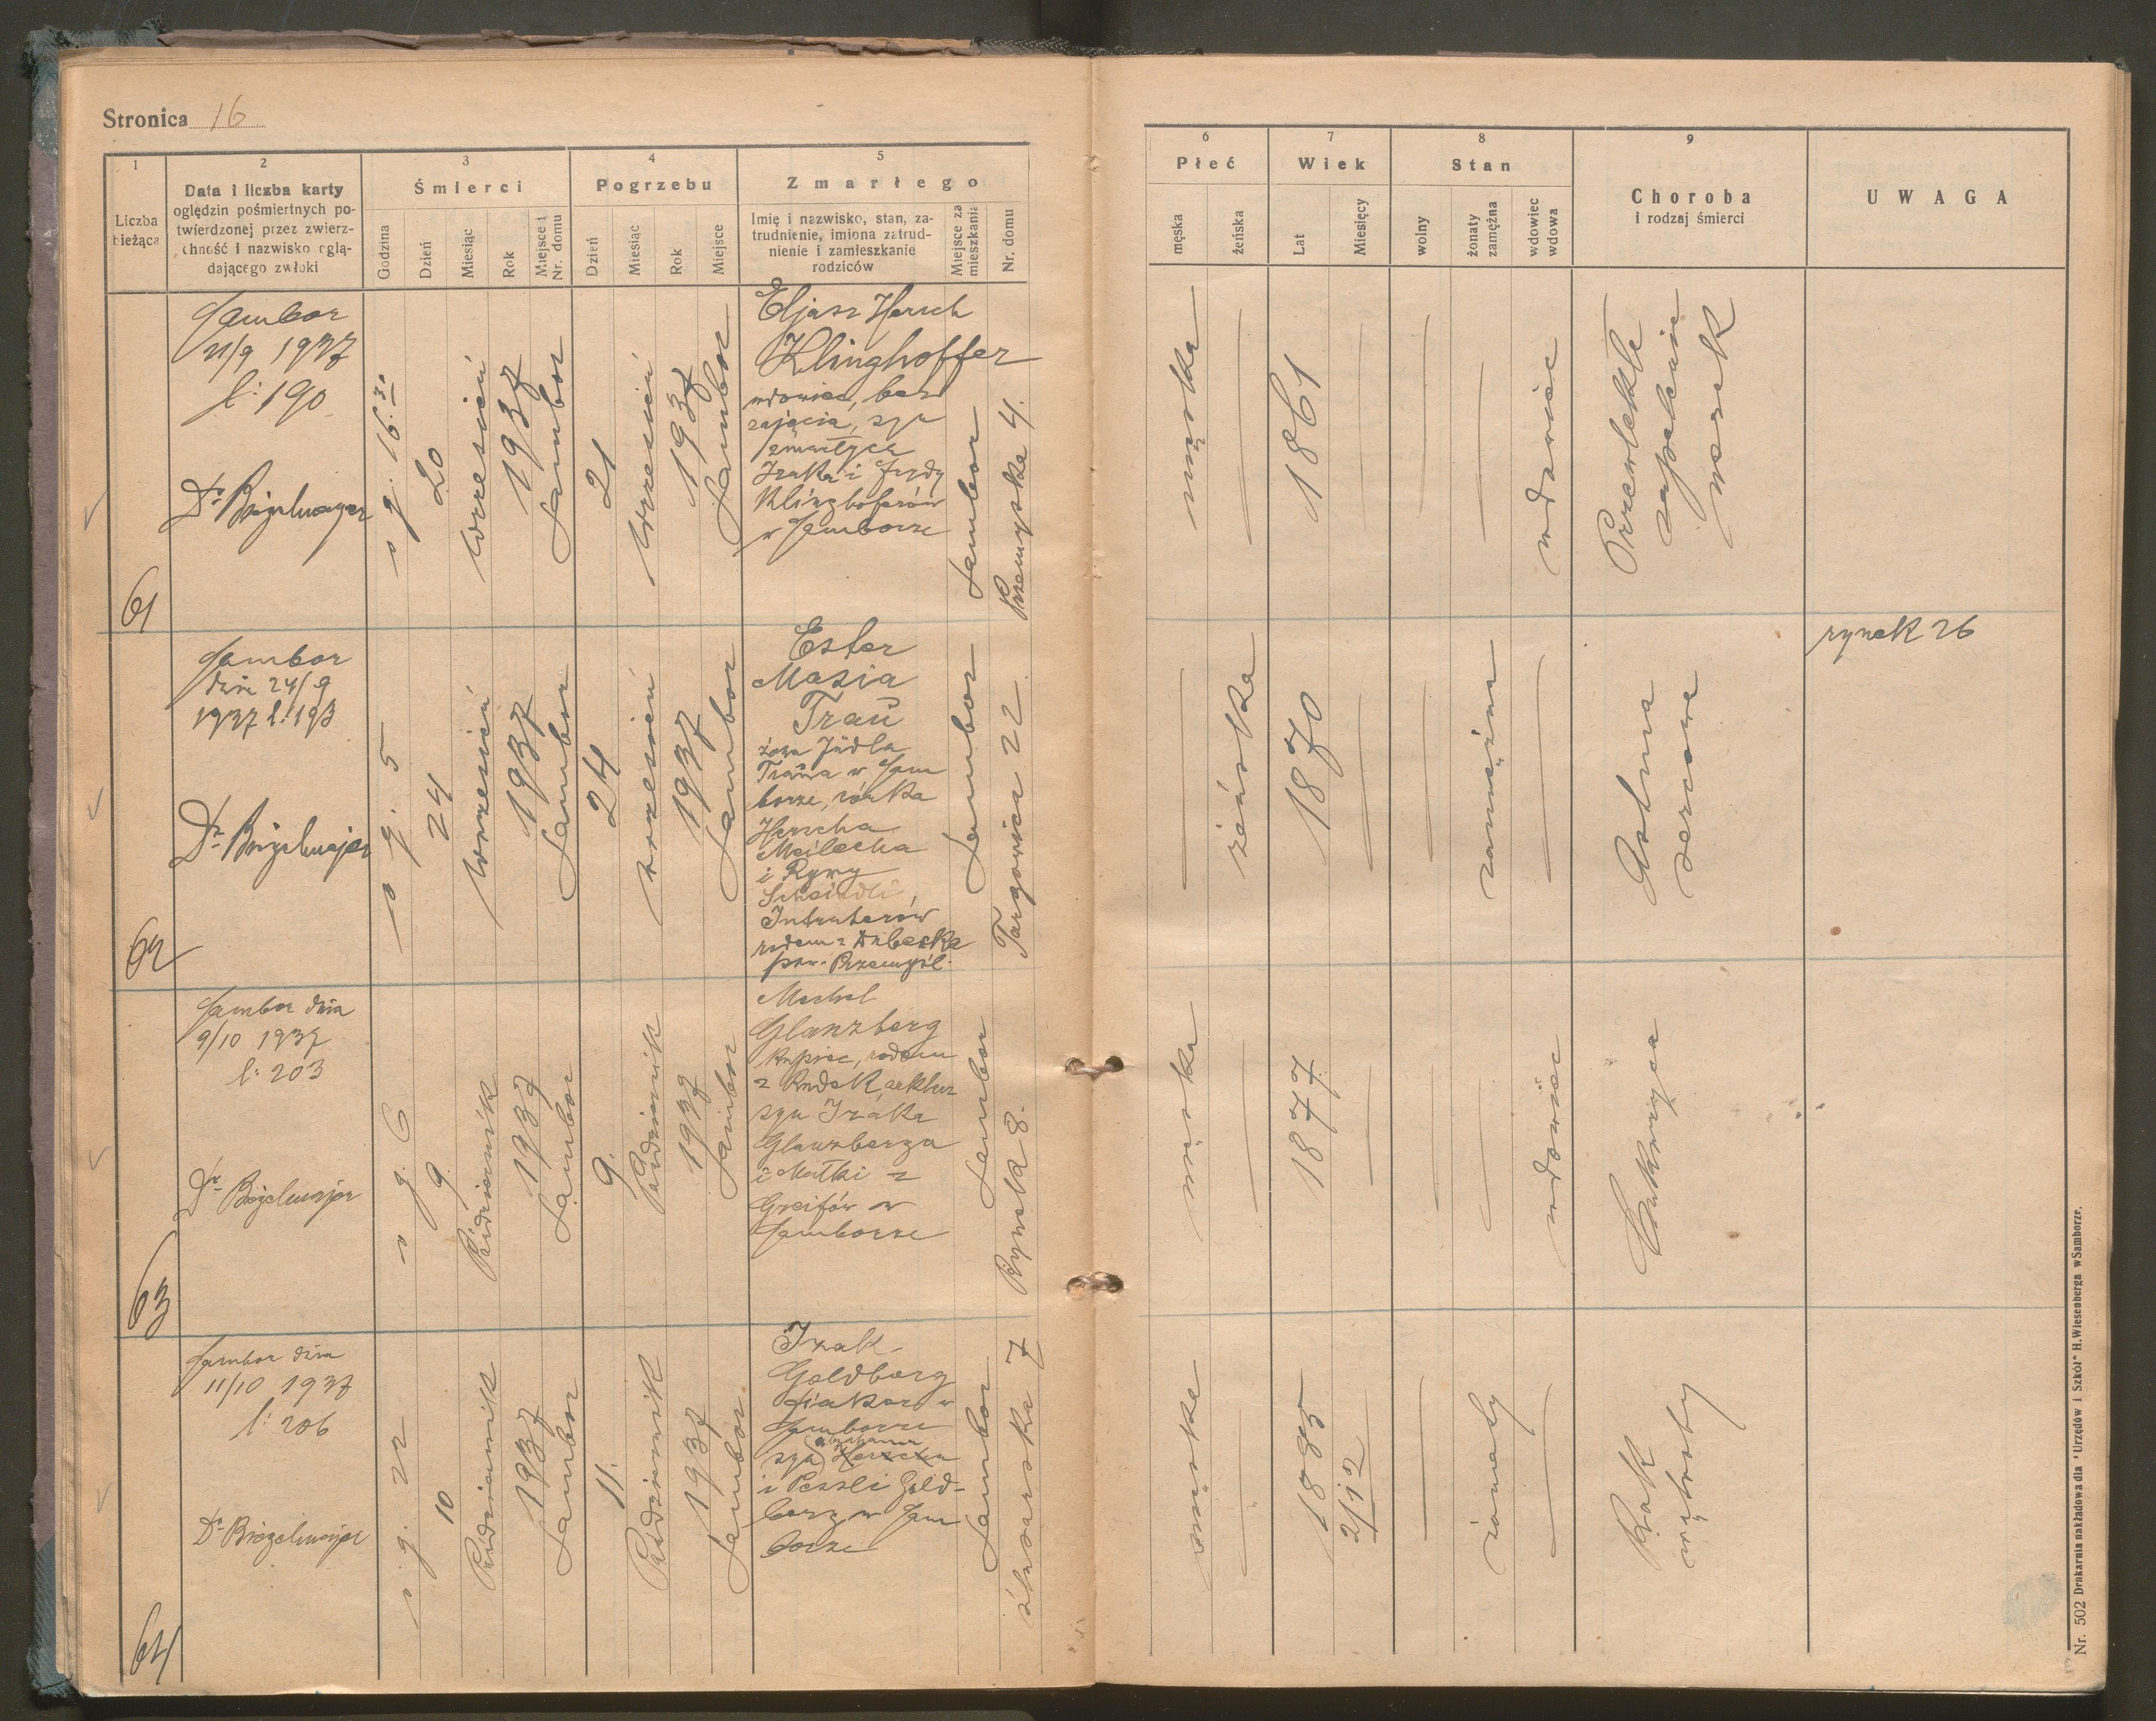 Stronica 16
1
2
3
4
5
Liczba bieżąca
Data i liczba karty
oględzin pośmiertnych po-
twierdzonej przez zwierz-
chność i nazwisko oglą-
dającego zwłoki
Śmierci
Godzina
Dzień
Miesiąc
Rok
Miejsce i Nr. domu
Pogrzebu
Dzień
Miesiąc
Rok
Miejsce
Zmarłego
Imię i nazwisko, stan, za-
trudnienie, imiona zatrud-
nienie i zamieszkanie
rodziców
Miejsce za
mieszkania
Nr. domu
6
7
8
9
Płeć
męska
żeńska
Wiek
Lat
Miesięcy
Stan
wolny
żonaty
zamężna
wdowiec
wdowa
Choroba
i rodzaj śmierci
UWAGA
61
Sambor
21/9 1937
l: 190
o g. 16.30
20
wrzesień
1937
Sambor
21
wrzesień
1937
Sambor
Eljasz Hersch
Klinghoffer
wdowiec, bez
zajęcia, syn
zmarłych
Izaka i
Klinghoferów
w Samborze
Sambor
Przemyska 4.
męska
1861
wdowiec
Przewlekłe
zapalenie
nerek
62
Sambor
dnia 24/9
1937 l: 193
o g. 5
24
wrzesień
1937
Sambor
24
wrzesień
1937
Sambor
Ester
Masia
Trau
żona Judla
Traua w Sam
borze, córka
Herscha
Meilecha
i Rywy
Scheindli
rodem z
pow. Przemyśl.
Sambor
Targowica 22
żeńska
1870
zamężna
Astma
sercowa
rynek 26
63
Sambor dnia
9/10 1937
l: 203
o g. 6
9.
Październik
1937
Sambor
9.
Październik
1937
Sambor
Mechel
Glanzberg
kupiec, rodem
z Rudek,
syn Izaka
Glanzberga
i Matki z
Greifów w
Samborze
Sambor
Rynek 8.
męska
1877
wdowiec
Cukrzyca
64
Sambor dnia
11/10 1937
l: 206
o g. 22
10
Październik
1937
Sambor
11.
Październik
1937
Sambor
Izak
Goldberg
fiakier w
Samborze
syn Abrahama Herscha
i Pessli Gold-
berg w Sam
borze
Sambor
7
męska
1885
2/12
żonaty
Rak
wątroby
Nr. 502 Drukarnia nakładowa dla "Urzędów i Szkół" H. Wiesenberga w Samborze.